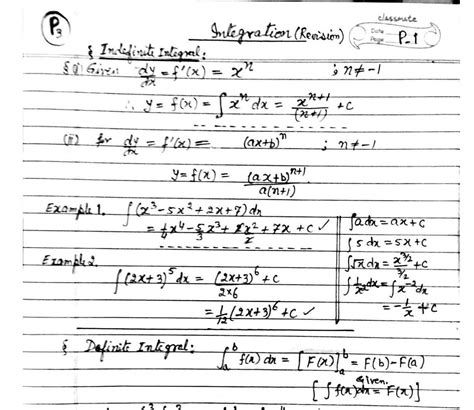 P3
classmate
Date
Page P-1
Integration (Revision)
§ Indefinite Integral:
§ (i) Given dy/dx = f'(x) = x^n ; n ≠ -1
∴ y = f(x) = ∫ x^n dx = x^(n+1)/(n+1) + c
(ii) for dy/dx = f'(x) = (ax+b)^n ; n ≠ -1
y = f(x) = (ax+b)^(n+1)/a(n+1)
Example 1. ∫(x^3 - 5x^2 + 2x + 7) dx
= 1/4 x^4 - 5/3 x^3 + 2x^2/2 + 7x + c ✓
Example 2.
∫(2x+3)^5 dx = (2x+3)^6/2×6 + c
= 1/12 (2x+3)^6 + c ✓
∫a dx = ax + c
∫5 dx = 5x + c
∫√x dx = x^(3/2)/(3/2) + c
∫1/x^2 dx = ∫x^-2 dx
= -1/x + c
§ Definite Integral: ∫_a^b f(x) dx = [F(x)]_a^b = F(b) - F(a)
given.
[∫f(x) dx = F(x)]